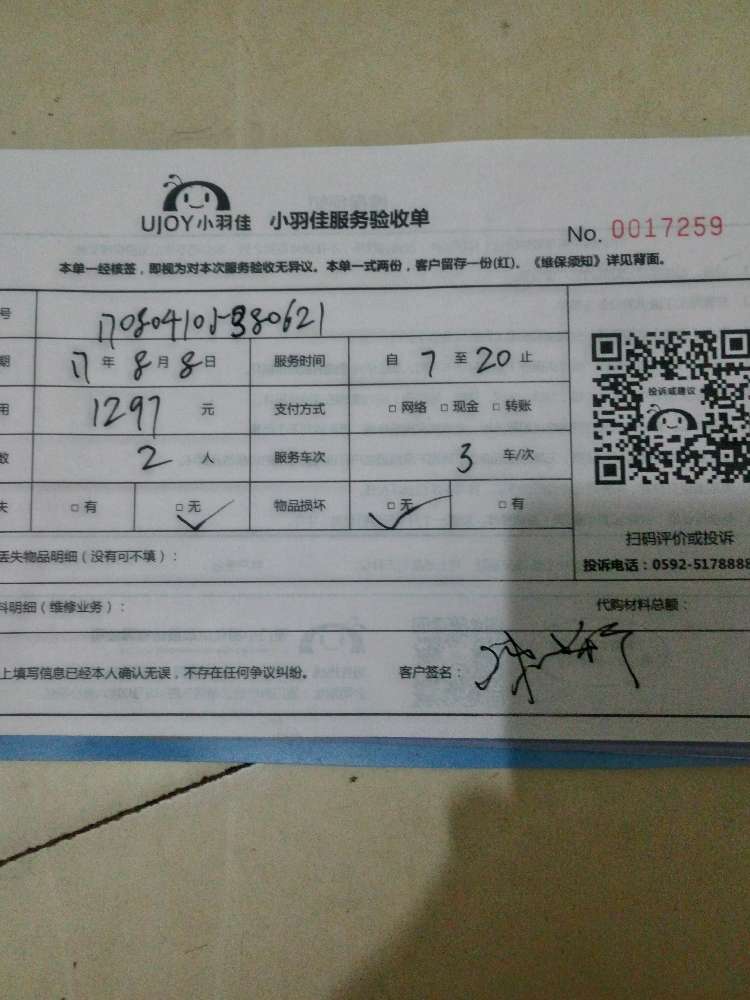 UJOY小羽佳 小羽佳服务验收单
No. 0017259
本单一经核签，即视为对本次服务验收无异议。本单一式两份，客户留存一份(红)。《维保须知》详见背面。
号 170804105380621
期 17 年 8 月 8 日 服务时间 自 7 至 20 止
用 1297 元 支付方式 □ 网络 □ 现金 □ 转账
数 2 服务车次 3 车/次
失 □ 有 □ 无 ✓ 物品损坏 □ 无 ✓ □ 有
投诉或建议
扫码评价或投诉
投诉电话：0592-5178888
丢失物品明细（没有可不填）：
料明细（维修业务）： 代购材料总额：
上填写信息已经本人确认无误，不存在任何争议纠纷。 客户签名：